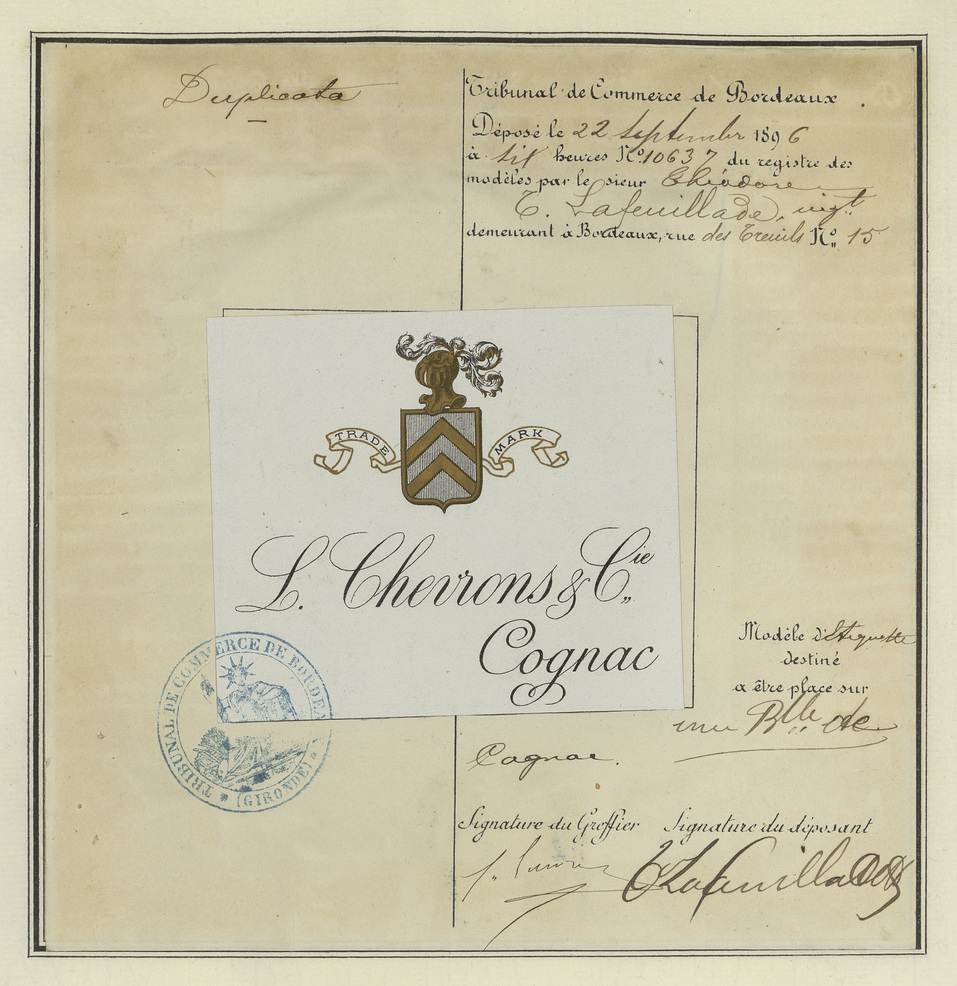 Duplicata
Tribunal de Commerce de Bordeaux.
Déposé le 22 septembre 1896
à six heures No. 10637 du registre des
modèles par le sieur Théodore
T. Lafeuillade, nigt.
demeurant à Bordeaux, rue des Treuils No. 15
TRADE MARK
L. Chevrons & Cie
Cognac
TRIBUNAL DE COMMERCE DE BORDEAUX
(GIRONDE)
Modèle d'Etiquette
destiné
a être place sur
une Blle de
Cognac.
Signature du Greffier Signature du déposant
T Lafeuillade